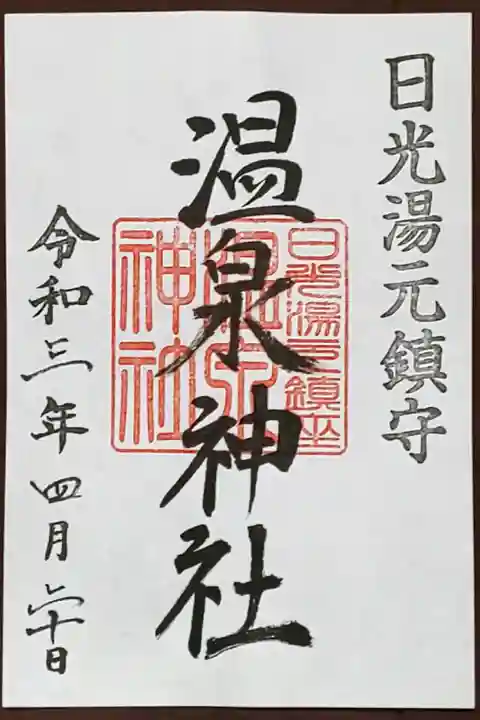 日光湯元鎮守
温泉神社
令和三年四月二十日
日光湯元鎮座
温泉
神社